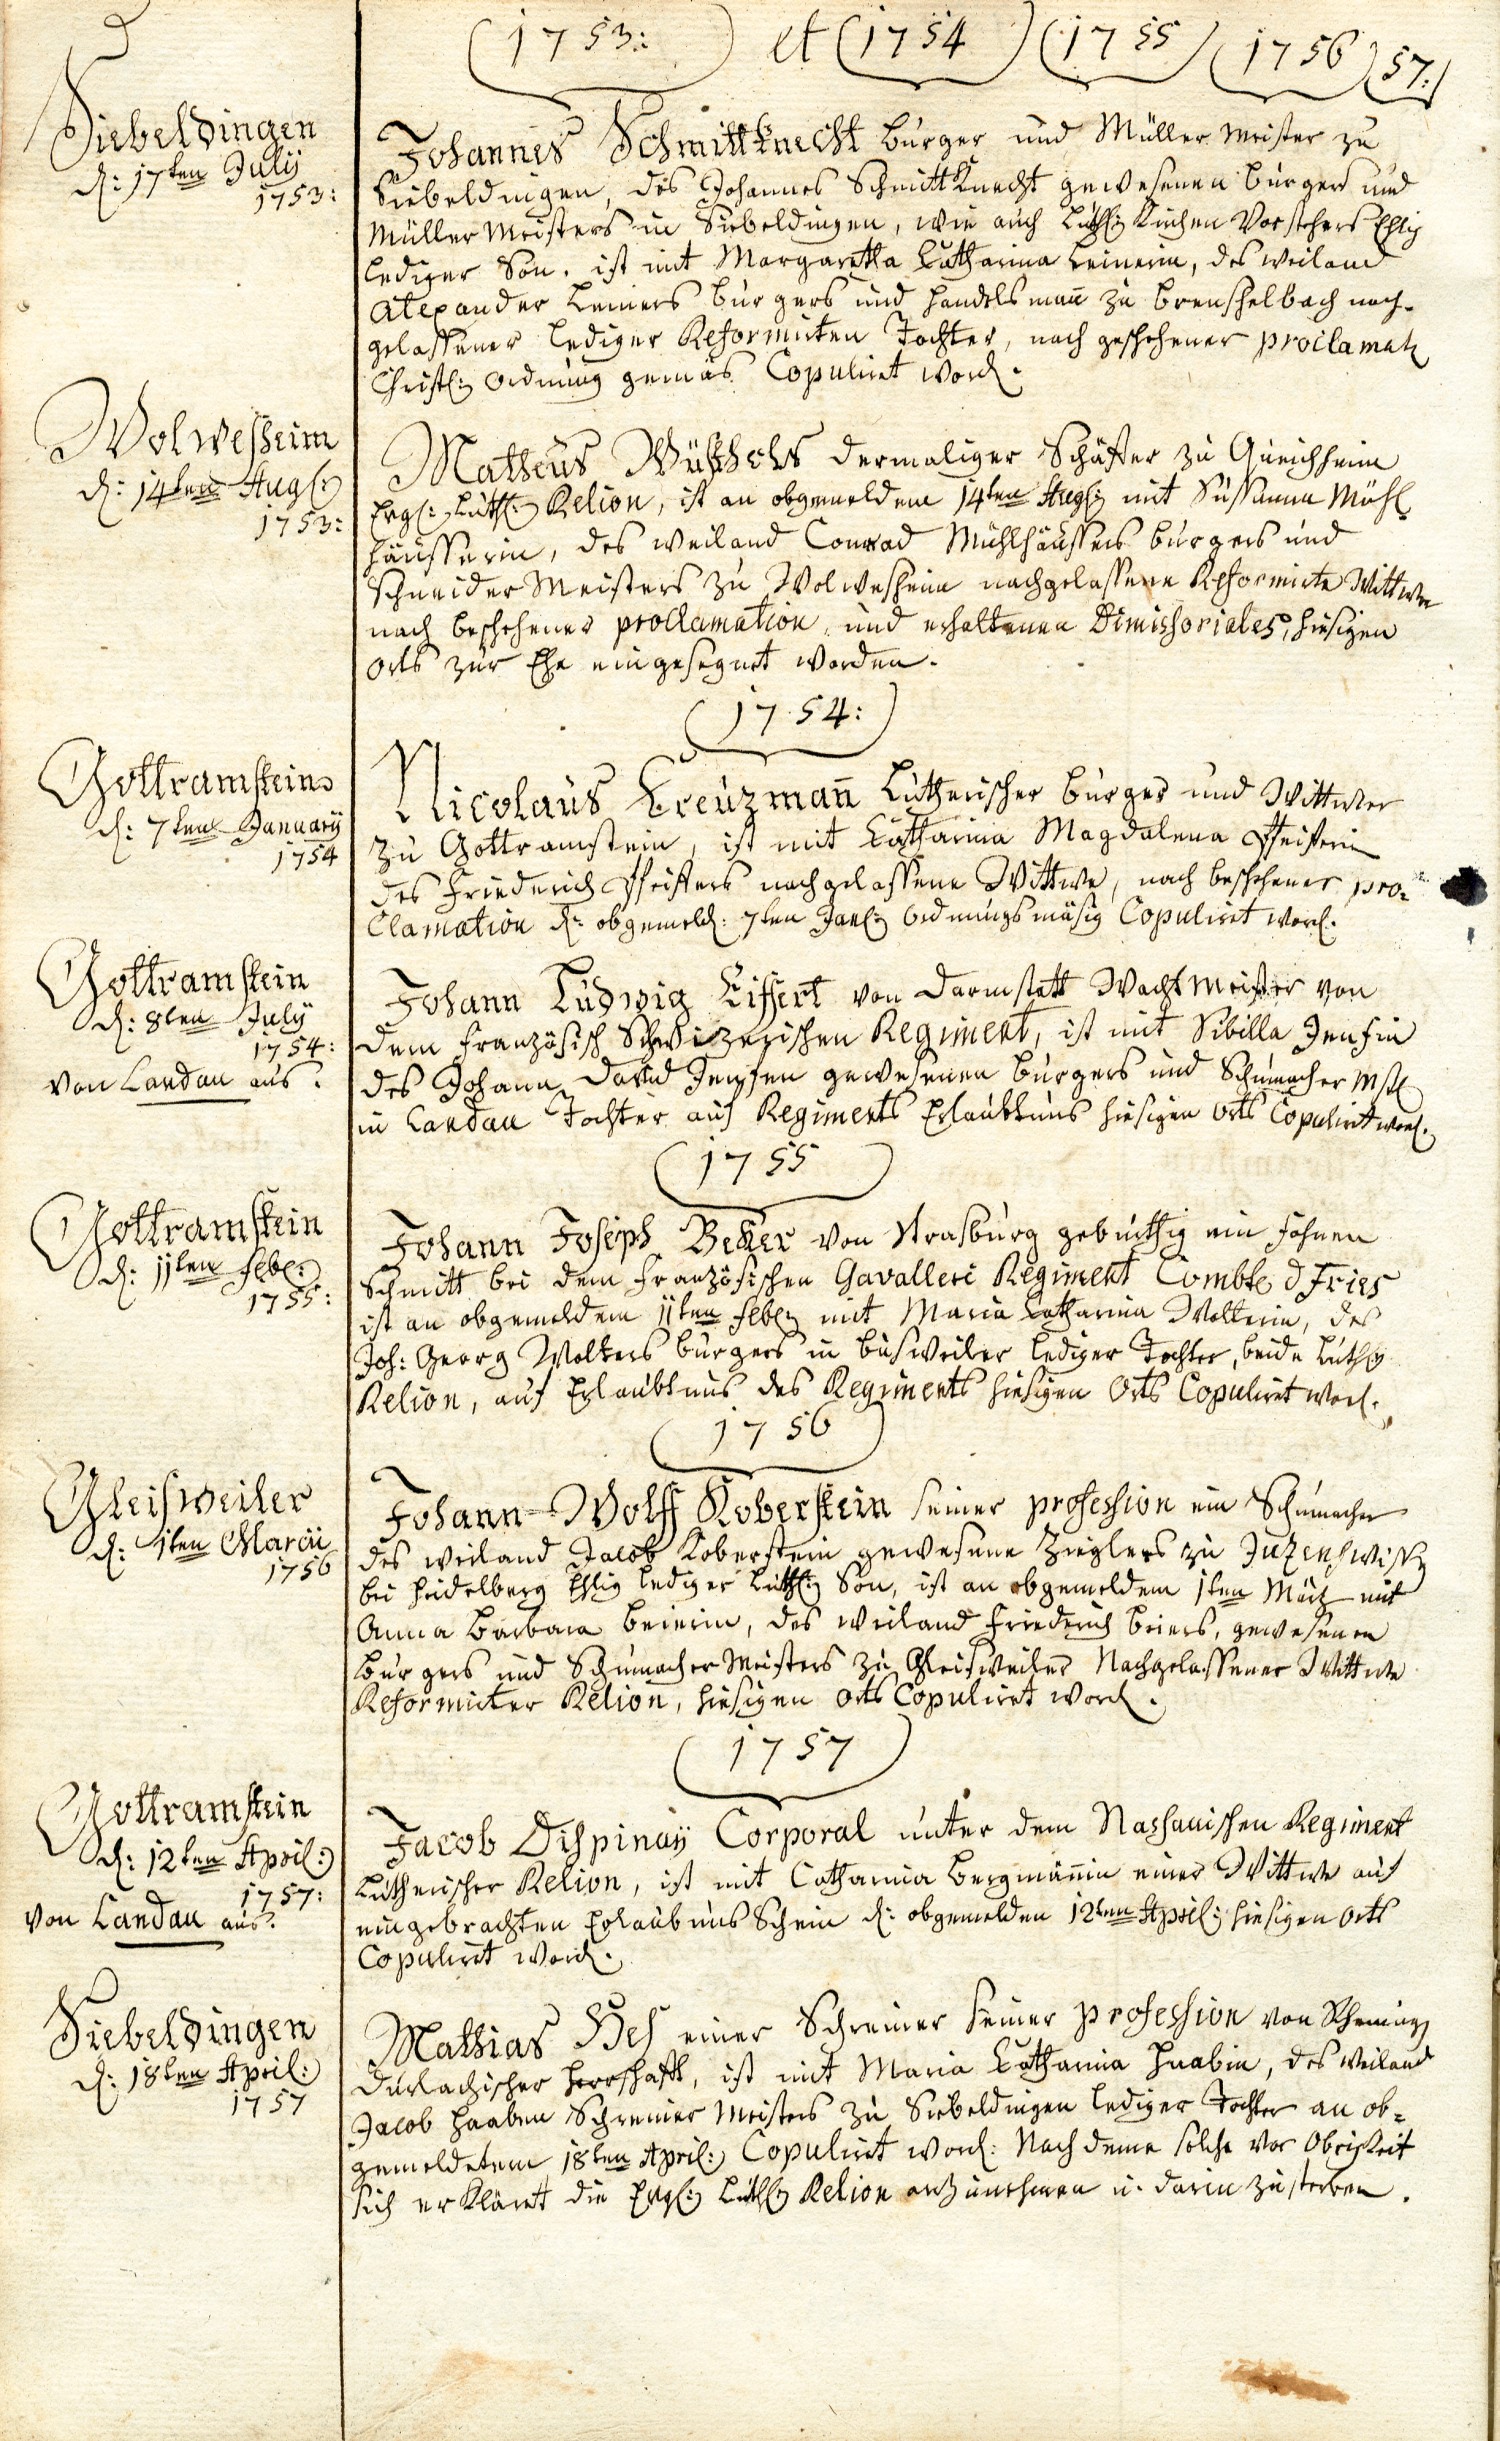 1753: et 1754 1755 1756 57:
Siebeldingen
d: 17ten Julÿ
1753:
Johannes Schmittknecht burger und Müller Meister zu
Siebeldingen, des Johannes Schmittknecht gewesenen burgers und
Müller Meisters in Siebeldingen, wie auch Luth: Kirchen Vorstehers Ehlig
lediger Son. ist mit Margaretha Catharina Leinerin, des weiland
Alexander Leiners burgers und handelsmañ zu brenschelbach nach-
gelassener lediger Reformirten Tochter, nach geschehener proclamat:
Christl: Ordnung gemäs Copuliret word.
Wolwesheim
d: 14ten Aug:
1753:
Matheus dermaliger Schäffer zu Queichheim
Evgl: Luth: Relion, ist an obgemeldem 14ten Aug: mit Susanna Möhl
häusserin, des weiland Conrad Mühlhäussers burgers und
Schneider Meisters zu Wolwesheim nachgelassene Reformirte Wittwe
nach beschehener proclamation, und erhaltenen Dimissoriales, hiesigen
Orts zur Ehe eingesegnet worden.
1754:
Gottramstein
d: 7ten Januarÿ
1754
Nicolaus Creuzmañ Lutherischer burger und Wittwer
zu Gottramstein, ist mit Catharina Magdalena Pfeifferin
des Friederich Pfeiffers nachgelassene Wittwe, nach beschehener pro=
clamation d: obgemeld: 7ten Jan: Ordnungsmäsig Copuliret word.
Gottramstein
d: 8ten Julÿ
1754:
von Landau aus.
Johann Ludwig Eiffert von Darmstatt Wachtmeister von
dem Französisch Schweizerischen Regiment, ist mit Sibilla Jensin
des Johann David Jensen gewesenen burgers und Schumacher Mstr
in Landau Tochter auf Regiments Erlaubtnus hiesigen Orts Copulirt word.
1755
Gottramstein
d: 11ten Feb:
1755:
Johann Joseph Beker von Strasburg gebürthig ein Fahnen
Schmitt bei dem Französischen Cavalleri Regiment Combte d Fries
ist an obgemeldem 11ten Feb: mit Maria Catharina Wolterin, des
Joh: Georg Wolters burgers in busweiler lediger Tochter, beide Luth:
Relion, auf Erlaubtnus des Regiments hiesigen Orts Copuliret word.
1756
Gleisweiler
d: 1ten Marcii
1756
Johann Wolff Koberstein seiner profession ein Schumacher
des weiland Jacob Koberstein gewesene Zieglers zu
bei Heidelberg Ehlig lediger Luth: Son, ist an obgemeldem 1ten Mertz mit
Anna Barbara beierin, des weiland Friederich beiers, gewesenen
burgers und Schumacher Meisters zu Gleisweiler Nachgelassener Wittwe
Reformirter Relion, hiesigen Orts Copuliret word.
1757
Gottramstein
d: 12ten April:
1757:
von Landau aus.
Jacob Dispinaÿ Corporal unter dem Nassauischen Regiment
Lutherischer Relion, ist mit Catharina Bergmäñin einer Wittwe auf
eingebrachten Erlaubnus Schein d: obgemelden 12ten April: hiesigen Orts
Copuliret word.
Siebeldingen
d: 18ten April:
1757
Mathias Hes einer Schreiner seiner profession von
Durlachischer Herrschafft, ist mit Maria Catharina Haabin, des weiland
Jacob Haaben Schreiner Meisters zu Siebeldingen lediger Tochter an ob=
gemeldetem 18ten April: Copuliret word: Nach deme solche vor Obrigkeit
sich erkläret die Evgl: Luth: Relion anzunehmen u. darin zu sterben.